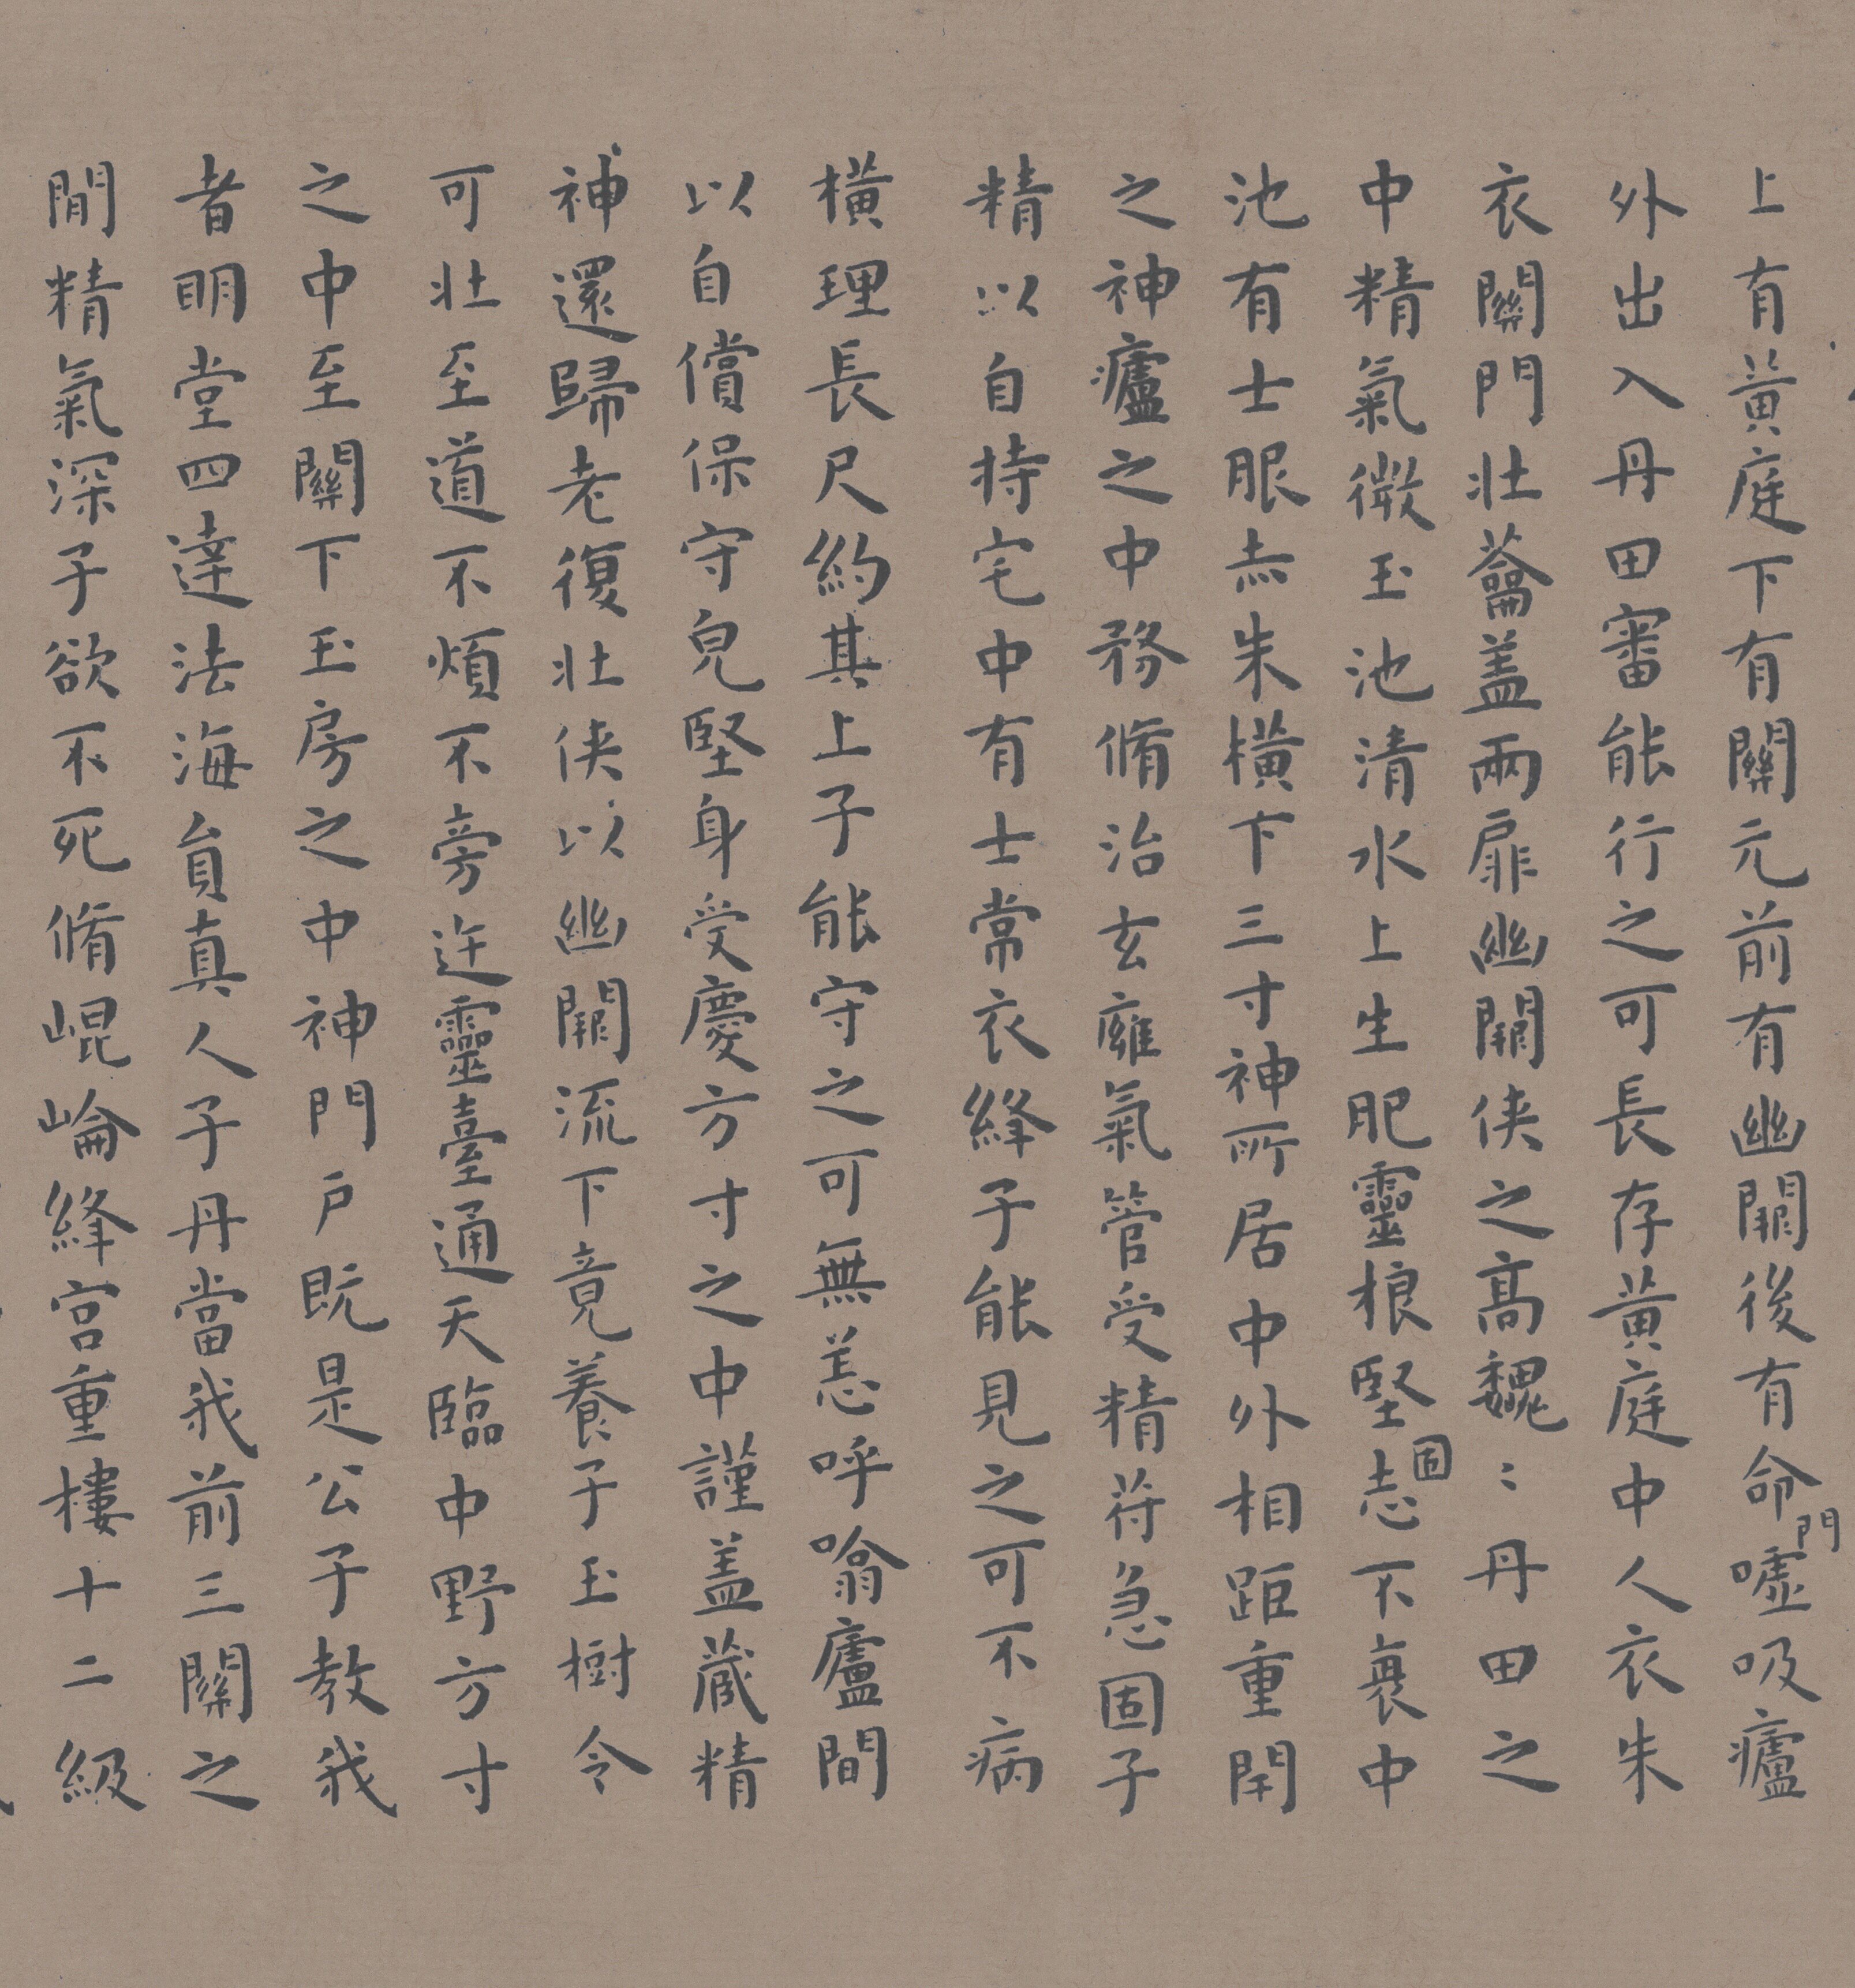 上有黃庭下有關元前有幽關後有命門噓吸廬
外出入丹田審能行之可長存黃庭中人衣朱
衣關門壯蘥蓋兩扉幽關俠之高魏〻丹田之
中精氣微玉池清水上生肥靈根堅固志不衰中
池有士服赤朱橫下三寸神所居中外相距重閇
之神廬之中務脩治玄廱氣管受精苻急固子
精以自持宅中有士常衣絳子能見之可不病
橫理長尺約其上子能守之可無恙呼噏廬間
以自償保守皃堅身受慶方寸之中謹蓋藏精
神還歸老復壯俠以幽關流下竟養子玉樹令
可壯至道不煩不旁迕靈臺通天臨中野方寸
之中至關下玉房之中神門戶既是公子教我
者明堂四達法海員真人子丹當我前三關之
間精氣深子欲不死脩崐崘絳宮重樓十二級